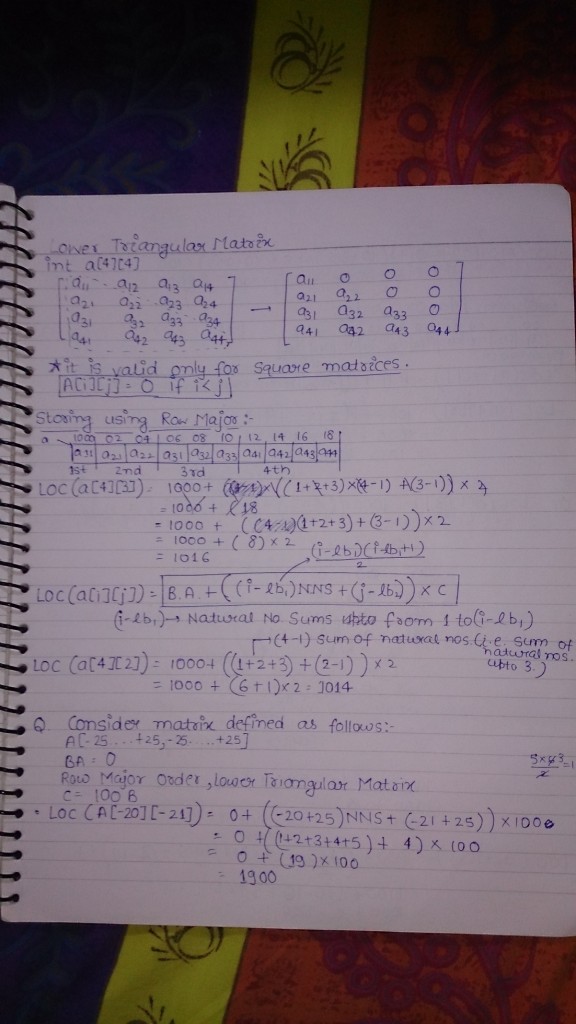 Lower Triangular Matrix
int a[4][4]
[a11 a12 a13 a14] → [a11 0 0 0]
[a21 a22 a23 a24] [a21 a22 0 0]
[a31 a32 a33 a34] [a31 a32 a33 0]
[a41 a42 a43 a44] [a41 a42 a43 a44]
*it is valid only for square matrices.
A[i][j] = 0 if i<j
Storing using Row Major:-
a 1000 02 04 06 08 10 12 14 16 18
a11 a21 a22 a31 a32 a33 a41 a42 a43 a44
1st 2nd 3rd 4th
LOC(a[4][3]) = 1000+ ((1+2+3)×(4-1) +(3-1)) × 2
= 1000 + 18
= 1000 + ((1+2+3) + (3-1)) × 2
= 1000 + (8) × 2
= 1016
(i-lb1)(i-lb1+1)/2
LOC(a[i][j]) = B.A. + ((i-lb1)NNS + (j-lb2)) × C
(i-lb1) → Natural No. Sums from 1 to (i-lb1)
→(4-1) sum of natural nos. (i.e. sum of natural nos. upto 3.)
LOC (a[4][2]) = 1000+ ((1+2+3) + (2-1)) × 2
= 1000 + (6+1)×2 = 1014
Q. Consider matrix defined as follows:-
A[-25....+25,-25.....+25]
BA = 0
Row Major Order, Lower Triangular Matrix
C = 100 B
LOC (A[-20][-21]) = 0+ ((-20+25)NNS + (-21+25)) × 100
= 0 + ((1+2+3+4+5) + 4) × 100
= 0 + (19) × 100
= 1900